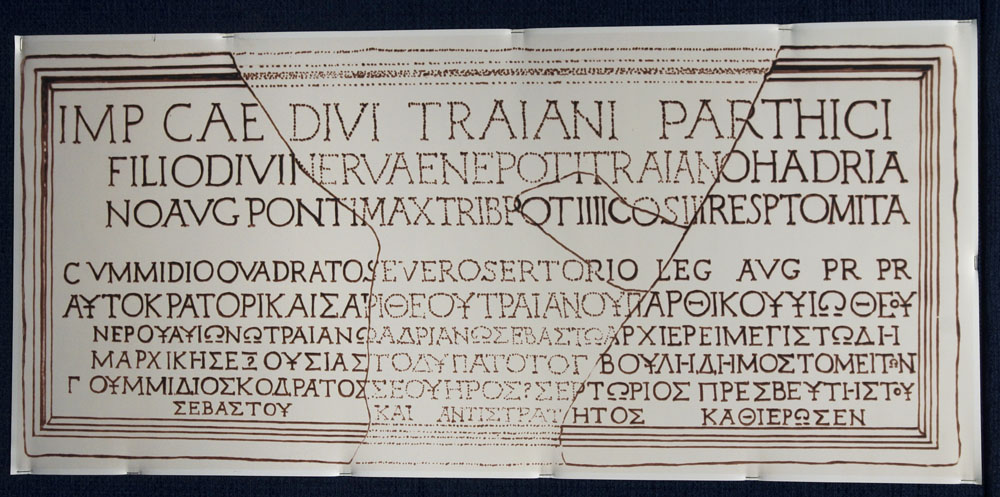 IMP CAE DIVI TRAIANI PARTHICI
FILIODIVINERVAENEPOTITRAIANOHADRIA
NOAVGPONTIMAXTRIBPOTIIIICOSIIIRESPTOMITA
CVMMIDIOQVADRATOSEVEROSERTORIO LEG AVG PR PR
ΑΥΤΟΚΡΑΤΟΡΙΚΑΙΣΑΡΙΘΕΟΥΤΡΑΙΑΝΟΥΠΑΡΘΙΚΟΥΥΙΩΘΕΟΥ
ΝΕΡΟΥΑΥΙΩΝΩΤΡΑΙΑΝΩΑΔΡΙΑΝΩΣΕΒΑΣΤΩΑΡΧΙΕΡΕΙΜΕΓΙΣΤΩΔΗ
ΜΑΡΧΙΚΗΣΕΞΟΥΣΙΑΣΤΟΔΥΠΑΤΟΤΟΓ ΒΟΥΛΗ.ΔΗΜΟΣΤΟΜΕΙΤΩΝ
Γ ΟΥΜΜΙΔΙΟΣΚΟΔΡΑΤΟΣΣΕΟΥΗΡΟΣ?ΣΕΡΤΩΡΙΟΣ ΠΡΕΣΒΕΥΤΗΣΤΟΥ
ΣΕΒΑΣΤΟΥ ΚΑΙ ΑΝΤΙΣΤΡΑΤΗΤΟΣ ΚΑΘΙΕΡΩΣΕΝ